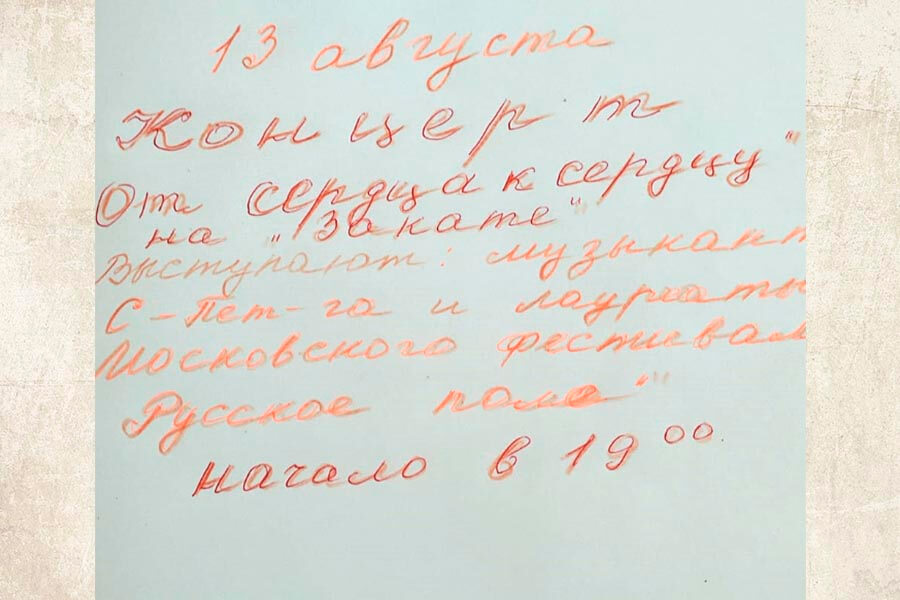 13 августа
Концерт
От сердца к сердцу"
на "Закате"
Выступают: музыкант
С-Пет-га и лауреаты
Московского фестивал
Русское поле"
начало в 19⁰⁰